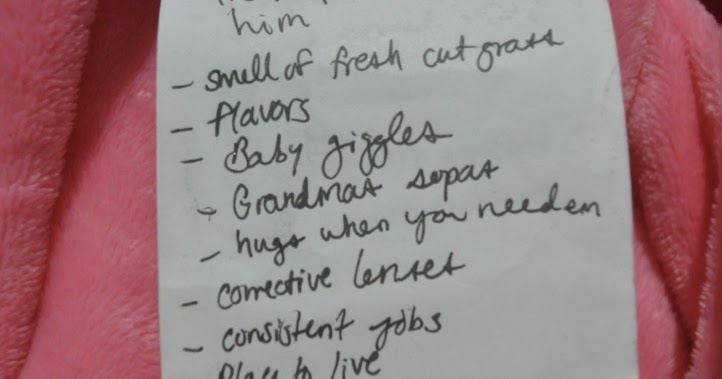 him
- smell of fresh cut grass
- flavors
- Baby giggles
- Grandmas sopas
- hugs when you need em
- corrective lenses
- consistent jobs
Place to live